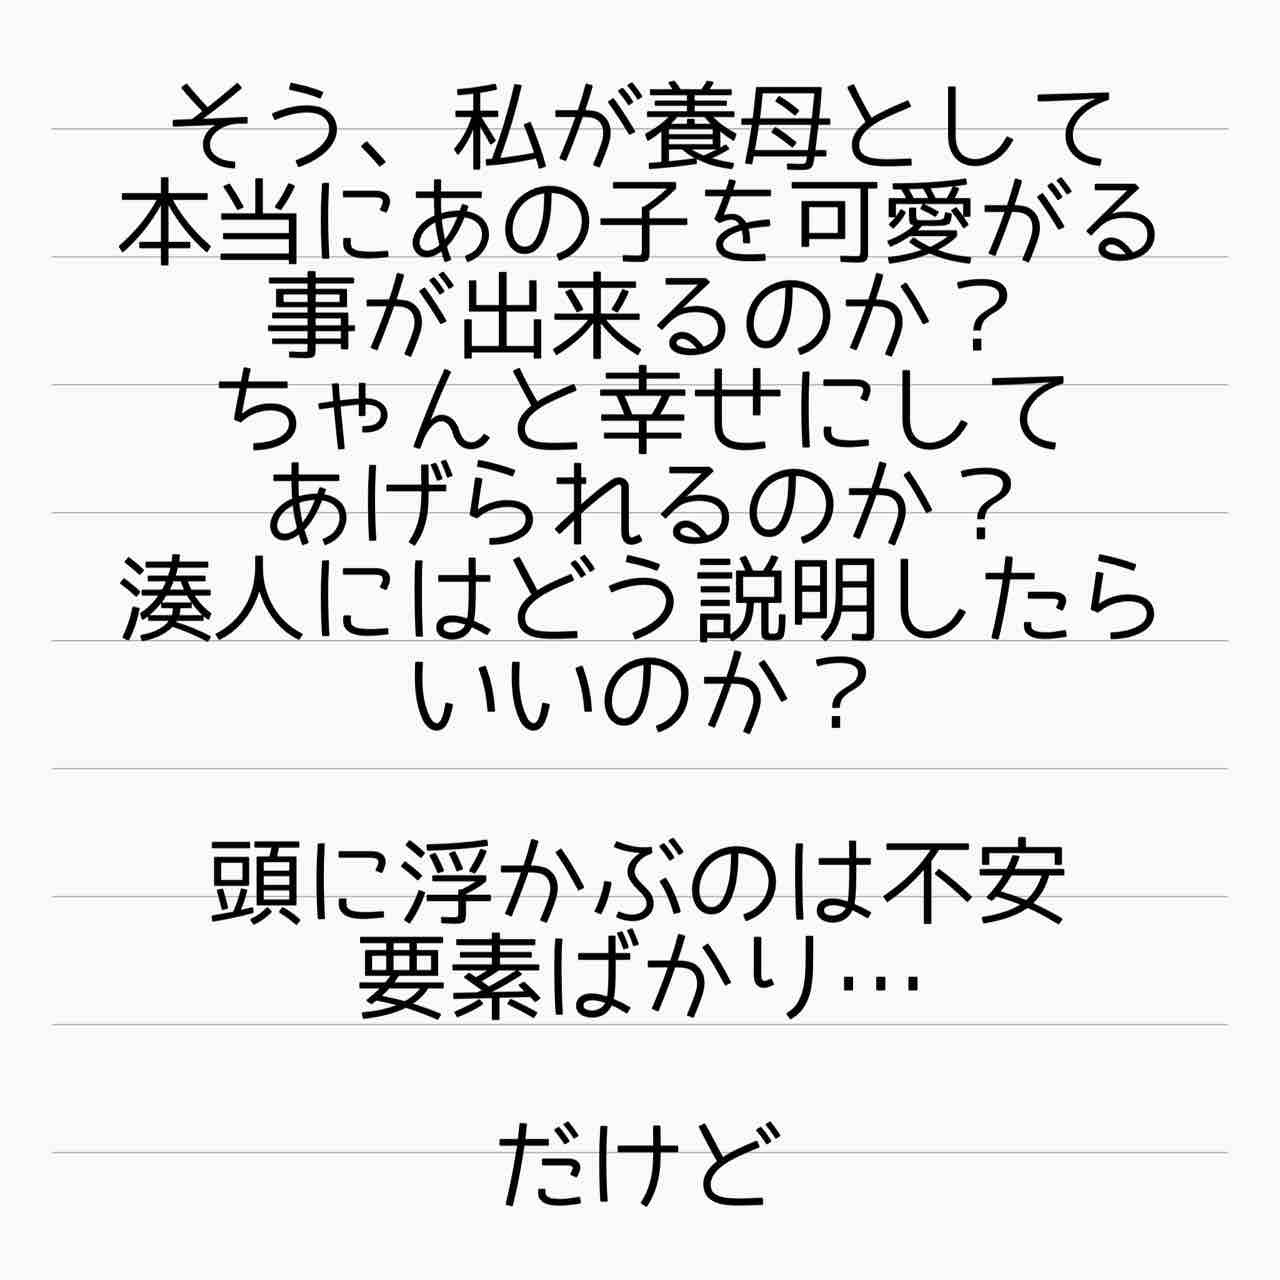 そう、私が養母として
本当にあの子を可愛がる
事が出来るのか？
ちゃんと幸せにして
あげられるのか？
湊人にはどう説明したら
いいのか？
頭に浮かぶのは不安
要素ばかり…
だけど